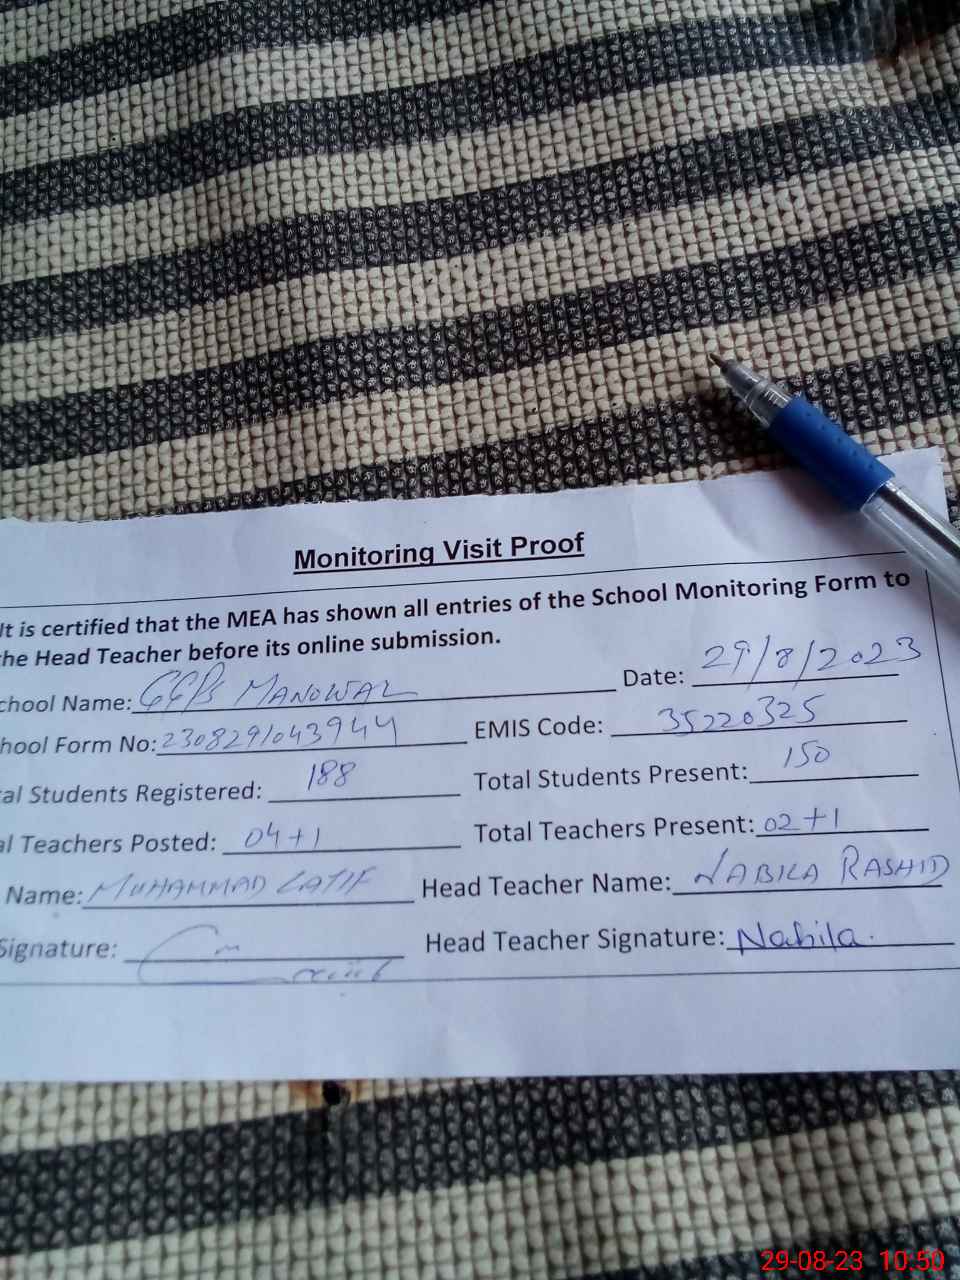 Monitoring Visit Proof
It is certified that the MEA has shown all entries of the School Monitoring Form to
he Head Teacher before its online submission.
chool Name: GGPS MANOWAL Date: 29/8/2023
hool Form No: 2308291043944 EMIS Code: 35220325
al Students Registered: 188 Total Students Present: 150
al Teachers Posted: 04+1 Total Teachers Present: 02+1
Name: MUHAMMAD LATIF Head Teacher Name: NABILA RASHID
Signature: Head Teacher Signature: Nabila.
29-08-23 10:50